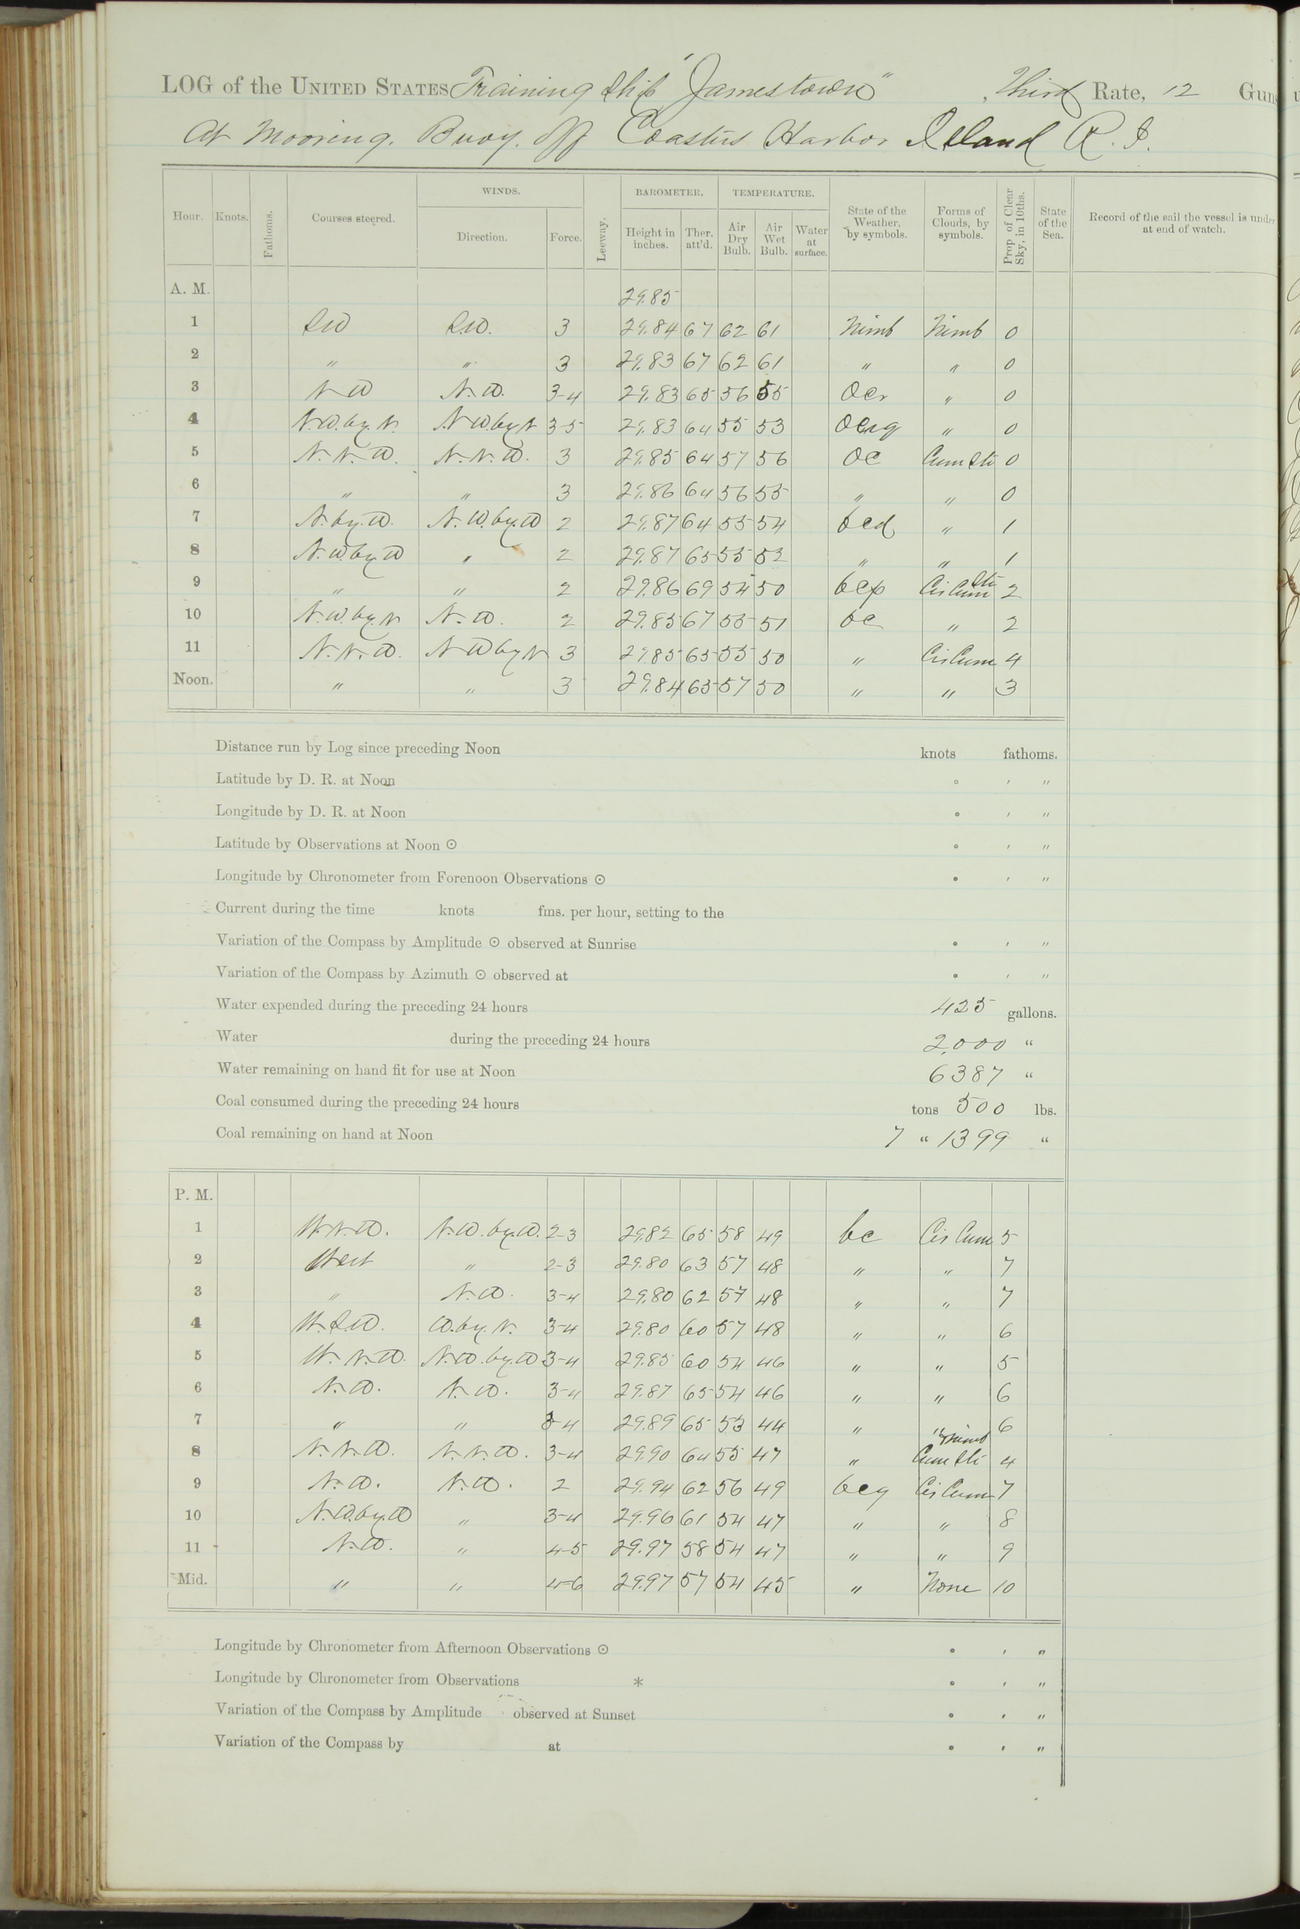 LOG of the UNITED STATES Training Ship "Jamestown", Third Rate, 12 Guns
At Mooring. Buoy. off Coasters Harbor Island R. I.
Hour. Knots. Fathoms. Courses steered. WINDS. Direction. Force. Leeway. BAROMETER. Height in inches. Ther. att'd. TEMPERATURE. Air Dry Bulb. Air Wet Bulb. Water at surface. State of the Weather, by symbols. Forms of Clouds, by symbols. Prop. of Clear Sky, in 10ths. State of the Sea. Record of the sail the vessel is under at end of watch.
A. M. 29.85
1 S.W S.W. 3 29.84 67 62 61 Nimb Nimb 0
2 " " 3 29.83 67 62 61 " " 0
3 N.W N.W. 3-4 29.83 65 56 55 Ocr " 0
4 N.W. by. N. N.W. by N 3-5 29.83 64 55 53 Ocrq " 0
5 N.N.W. N.N.W. 3 29.85 64 57 56 Oc Cum Str 0
6 " " 3 29.86 64 56 55 " " 0
7 N. by. W. N.W. by. W 2 29.87 64 55 54 bcd " 1
8 N.W. by W " 2 29.87 65 55 52 " " 1
9 " " 2 29.86 69 54 50 bcp Cir Cum Str 2
10 N.W. by. N N.W. 2 29.85 67 55 51 bc " 2
11 N.N.W. N W by N 3 29.85 65 55 50 " Cir Cum 4
Noon. " " 3 29.84 65 57 50 " " 3
Distance run by Log since preceding Noon knots fathoms.
Latitude by D. R. at Noon ° ' "
Longitude by D. R. at Noon ° ' "
Latitude by Observations at Noon ☉ ° ' "
Longitude by Chronometer from Forenoon Observations ☉ ° ' "
Current during the time knots fms. per hour, setting to the
Variation of the Compass by Amplitude ☉ observed at Sunrise ° ' "
Variation of the Compass by Azimuth ☉ observed at ° ' "
Water expended during the preceding 24 hours 425 gallons.
Water during the preceding 24 hours 2,000 "
Water remaining on hand fit for use at Noon 6387 "
Coal consumed during the preceding 24 hours tons 500 lbs.
Coal remaining on hand at Noon 7 " 1399 "
P. M.
1 W.N.W. N.W. by. W. 2-3 29.82 65 58 49 bc Cir Cum 5
2 West " 2-3 29.80 63 57 48 " " 7
3 " N.W. 3-4 29.80 62 57 48 " " 7
4 W.S.W. W. by. N. 3-4 29.80 60 57 48 " " 6
5 W.N.W. N.W. by. W 3-4 29.85 60 54 46 " " 5
6 N.W. N.W. 3-4 29.87 65 54 46 " " 6
7 " " 3-4 29.89 65 53 44 " " 6
8 N.N.W. N.N.W. 3-4 29.90 64 55 47 " Nimb Cum Str 4
9 N.W. N.W. 2 29.94 62 56 49 bcq Cir Cum 7
10 N.W. by. W " 3-4 29.96 61 54 47 " " 8
11 N.W. " 4-5 29.97 58 54 47 " " 9
Mid. " " 4-6 29.97 57 54 45 " None 10
Longitude by Chronometer from Afternoon Observations ☉ ° ' "
Longitude by Chronometer from Observations * ° ' "
Variation of the Compass by Amplitude observed at Sunset ° ' "
Variation of the Compass by at ° ' "